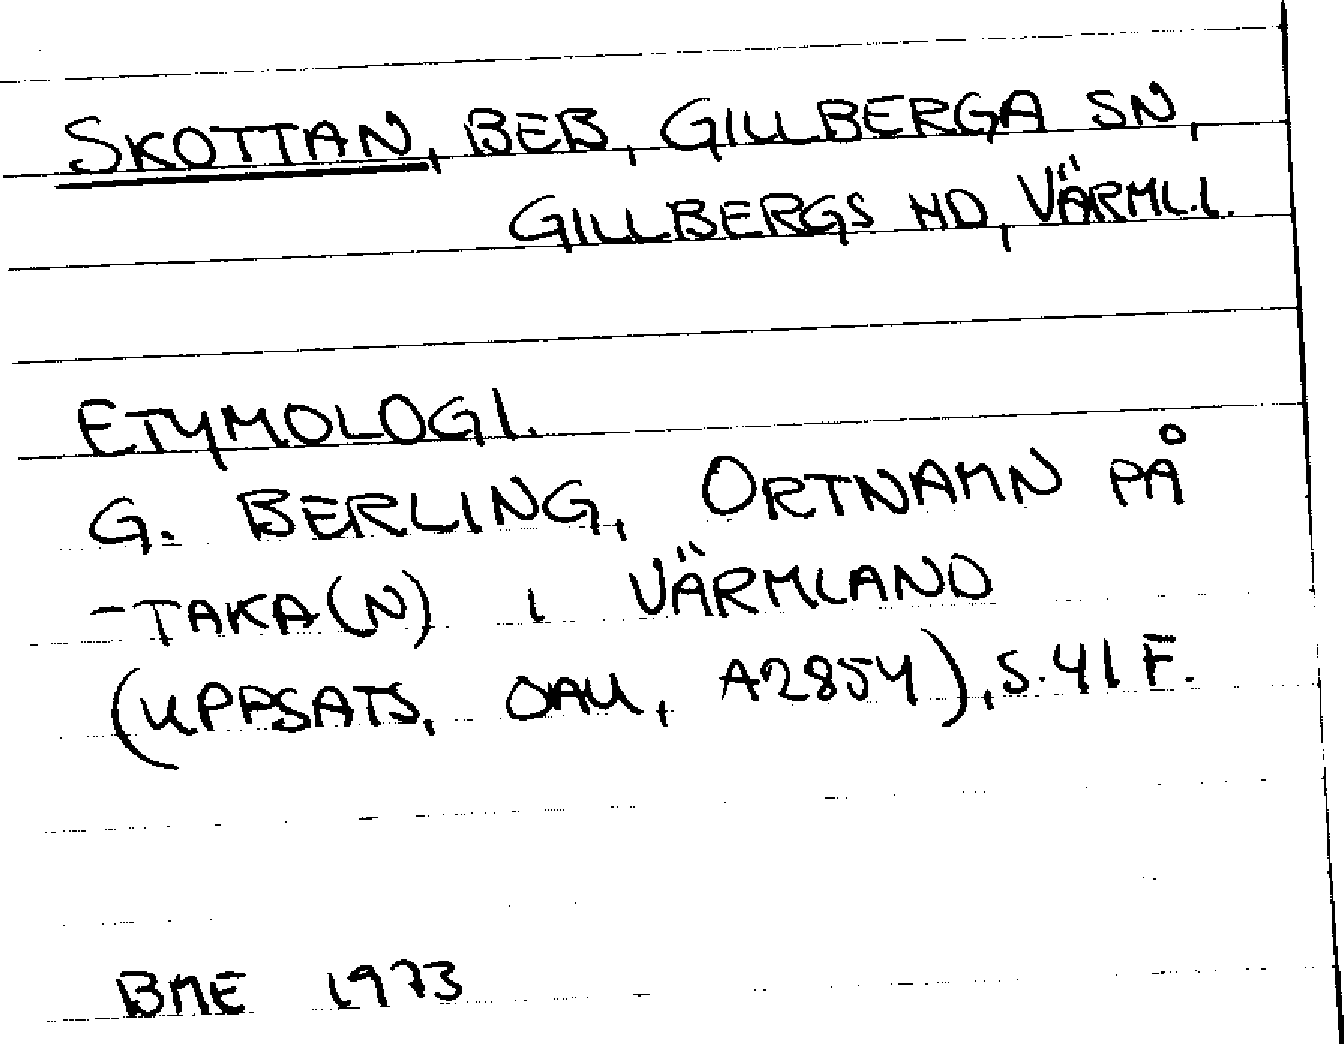 SKOTTAN, BEB, GILLBERGA SN,
GILLBERGS HD, VÄRML.L.
ETYMOLOGI.
G. BERLING, ORTNAMN PÅ
-TAKA(N) I VÄRMLAND
(UPPSATS, OAU, A2854), S.41 F.
BME 1973